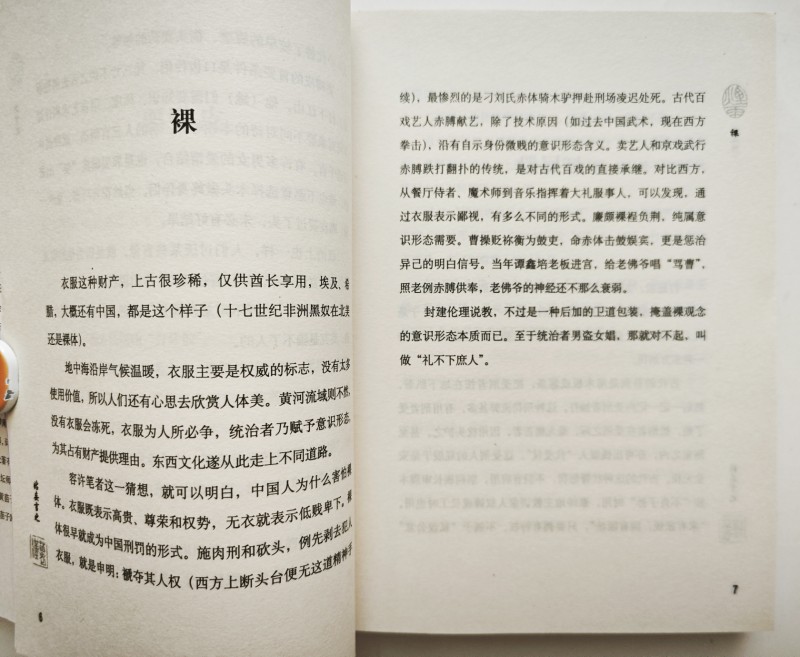 裸
衣服这种财产，上古很珍稀，仅供酋长享用，埃及、希
腊，大概还有中国，都是这个样子（十七世纪非洲黑奴在北美
还是裸体）。
地中海沿岸气候温暖，衣服主要是权威的标志，没有太多
使用价值，所以人们还有心思去欣赏人体美。黄河流域则不然，
没有衣服会冻死，衣服为人所必争，统治者乃赋予意识形态，
为其占有财产提供理由。东西文化遂从此走上不同道路。
容许笔者这一猜想，就可以明白，中国人为什么害怕裸
体。衣服既表示高贵、尊荣和权势，无衣就表示低贱卑下，裸
体很早就成为中国刑罚的形式。施肉刑和砍头，例先剥去犯人
衣服，就是申明：褫夺其人权（西方上断头台便无这道精神手
6
裸
续），最惨烈的是刁刘氏赤体骑木驴押赴刑场凌迟处死。古代百
戏艺人赤膊献艺，除了技术原因（如过去中国武术，现在西方
拳击），沿有自示身份微贱的意识形态含义。卖艺人和京戏武行
赤膊跌打翻扑的传统，是对古代百戏的直接承继。对比西方，
从餐厅侍者、魔术师到音乐指挥着大礼服事人，可以发现，通
过衣服表示鄙视，有多么不同的形式。廉颇裸裎负荆，纯属意
识形态需要。曹操贬祢衡为鼓吏，命赤体击鼓娱宾，更是惩治
异己的明白信号。当年谭鑫培老板进宫，给老佛爷唱“骂曹”，
照老例赤膊供奉，老佛爷的神经还不那么衰弱。
封建伦理说教，不过是一种后加的卫道包装，掩盖裸观念
的意识形态本质而已。至于统治者男盗女娼，那就对不起，叫
做“礼不下庶人”。
7